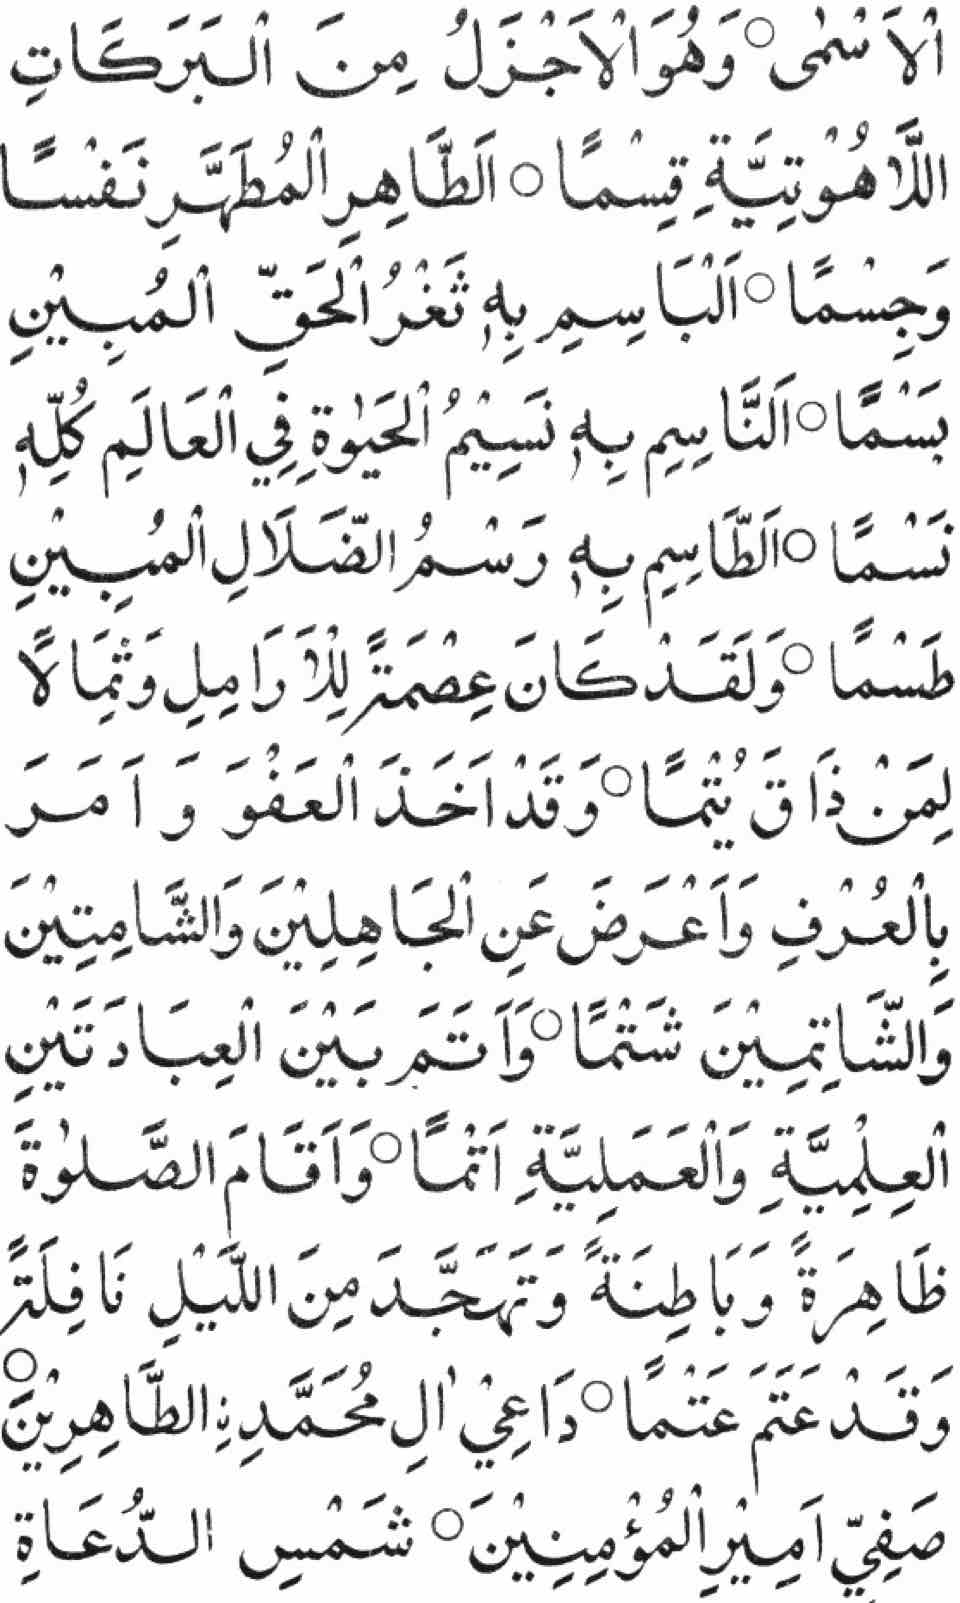 اْلاَسْمٰى ○ وَهُوَ اْلاَجْزَلُ مِنَ اْلبَرَكَاتِ
اللَّاهُوْتِيَّةِ قِسْمًا ○ اَلطَّاهِرِ اْلمُطَهَّرِ نَفْسًا
وَجِسْمًا ○ اَلْبَاسِمِ بِهٖ ثَغْرُ اْلحَقِّ اْلمُبِيْنِ
بَسْمًا ○ اَلنَّاسِمِ بِهٖ نَسِيْمُ اْلحَيٰوةِ فِي اْلعَالَمِ كُلِّهٖ
نَسْمًا ○ اَلطَّاسِمِ بِهٖ رَسْمُ الضَّلَالِ اْلمُبِيْنِ
طَسْمًا ○ وَلَقَدْ كَانَ عِصْمَةً لِلْاَرَامِلِ وَثِمَالًا
لِمَنْ ذَاقَ يُتْمًا ○ وَقَدْ اَخَذَ اْلعَفْوَ وَاَمَرَ
بِاْلعُرْفِ وَاَعْرَضَ عَنِ اْلجَاهِلِيْنَ وَالشَّامِتِيْنَ
وَالشَّاتِمِيْنَ شَتْمًا ○ وَاَتَمَ بَيْنَ اْلعِبَادَتَيْنِ
اْلعِلْمِيَّةِ وَاْلعَمَلِيَّةِ اَتْمًا ○ وَاَقَامَ الصَّلٰوةَ
ظَاهِرَةً وَبَاطِنَةً وَتَهَجَّدَ مِنَ اللَّيْلِ نَافِلَةً
وَقَدْ عَتَمَ عَتْمًا ○ دَاعِيْ اٰلِ مُحَمَّدِ نِ الطَّاهِرِيْنَ ○
صَفِيِّ اَمِيْرِ اْلمُؤْمِنِيْنَ ○ شَمْسِ الدُّعَاةِ